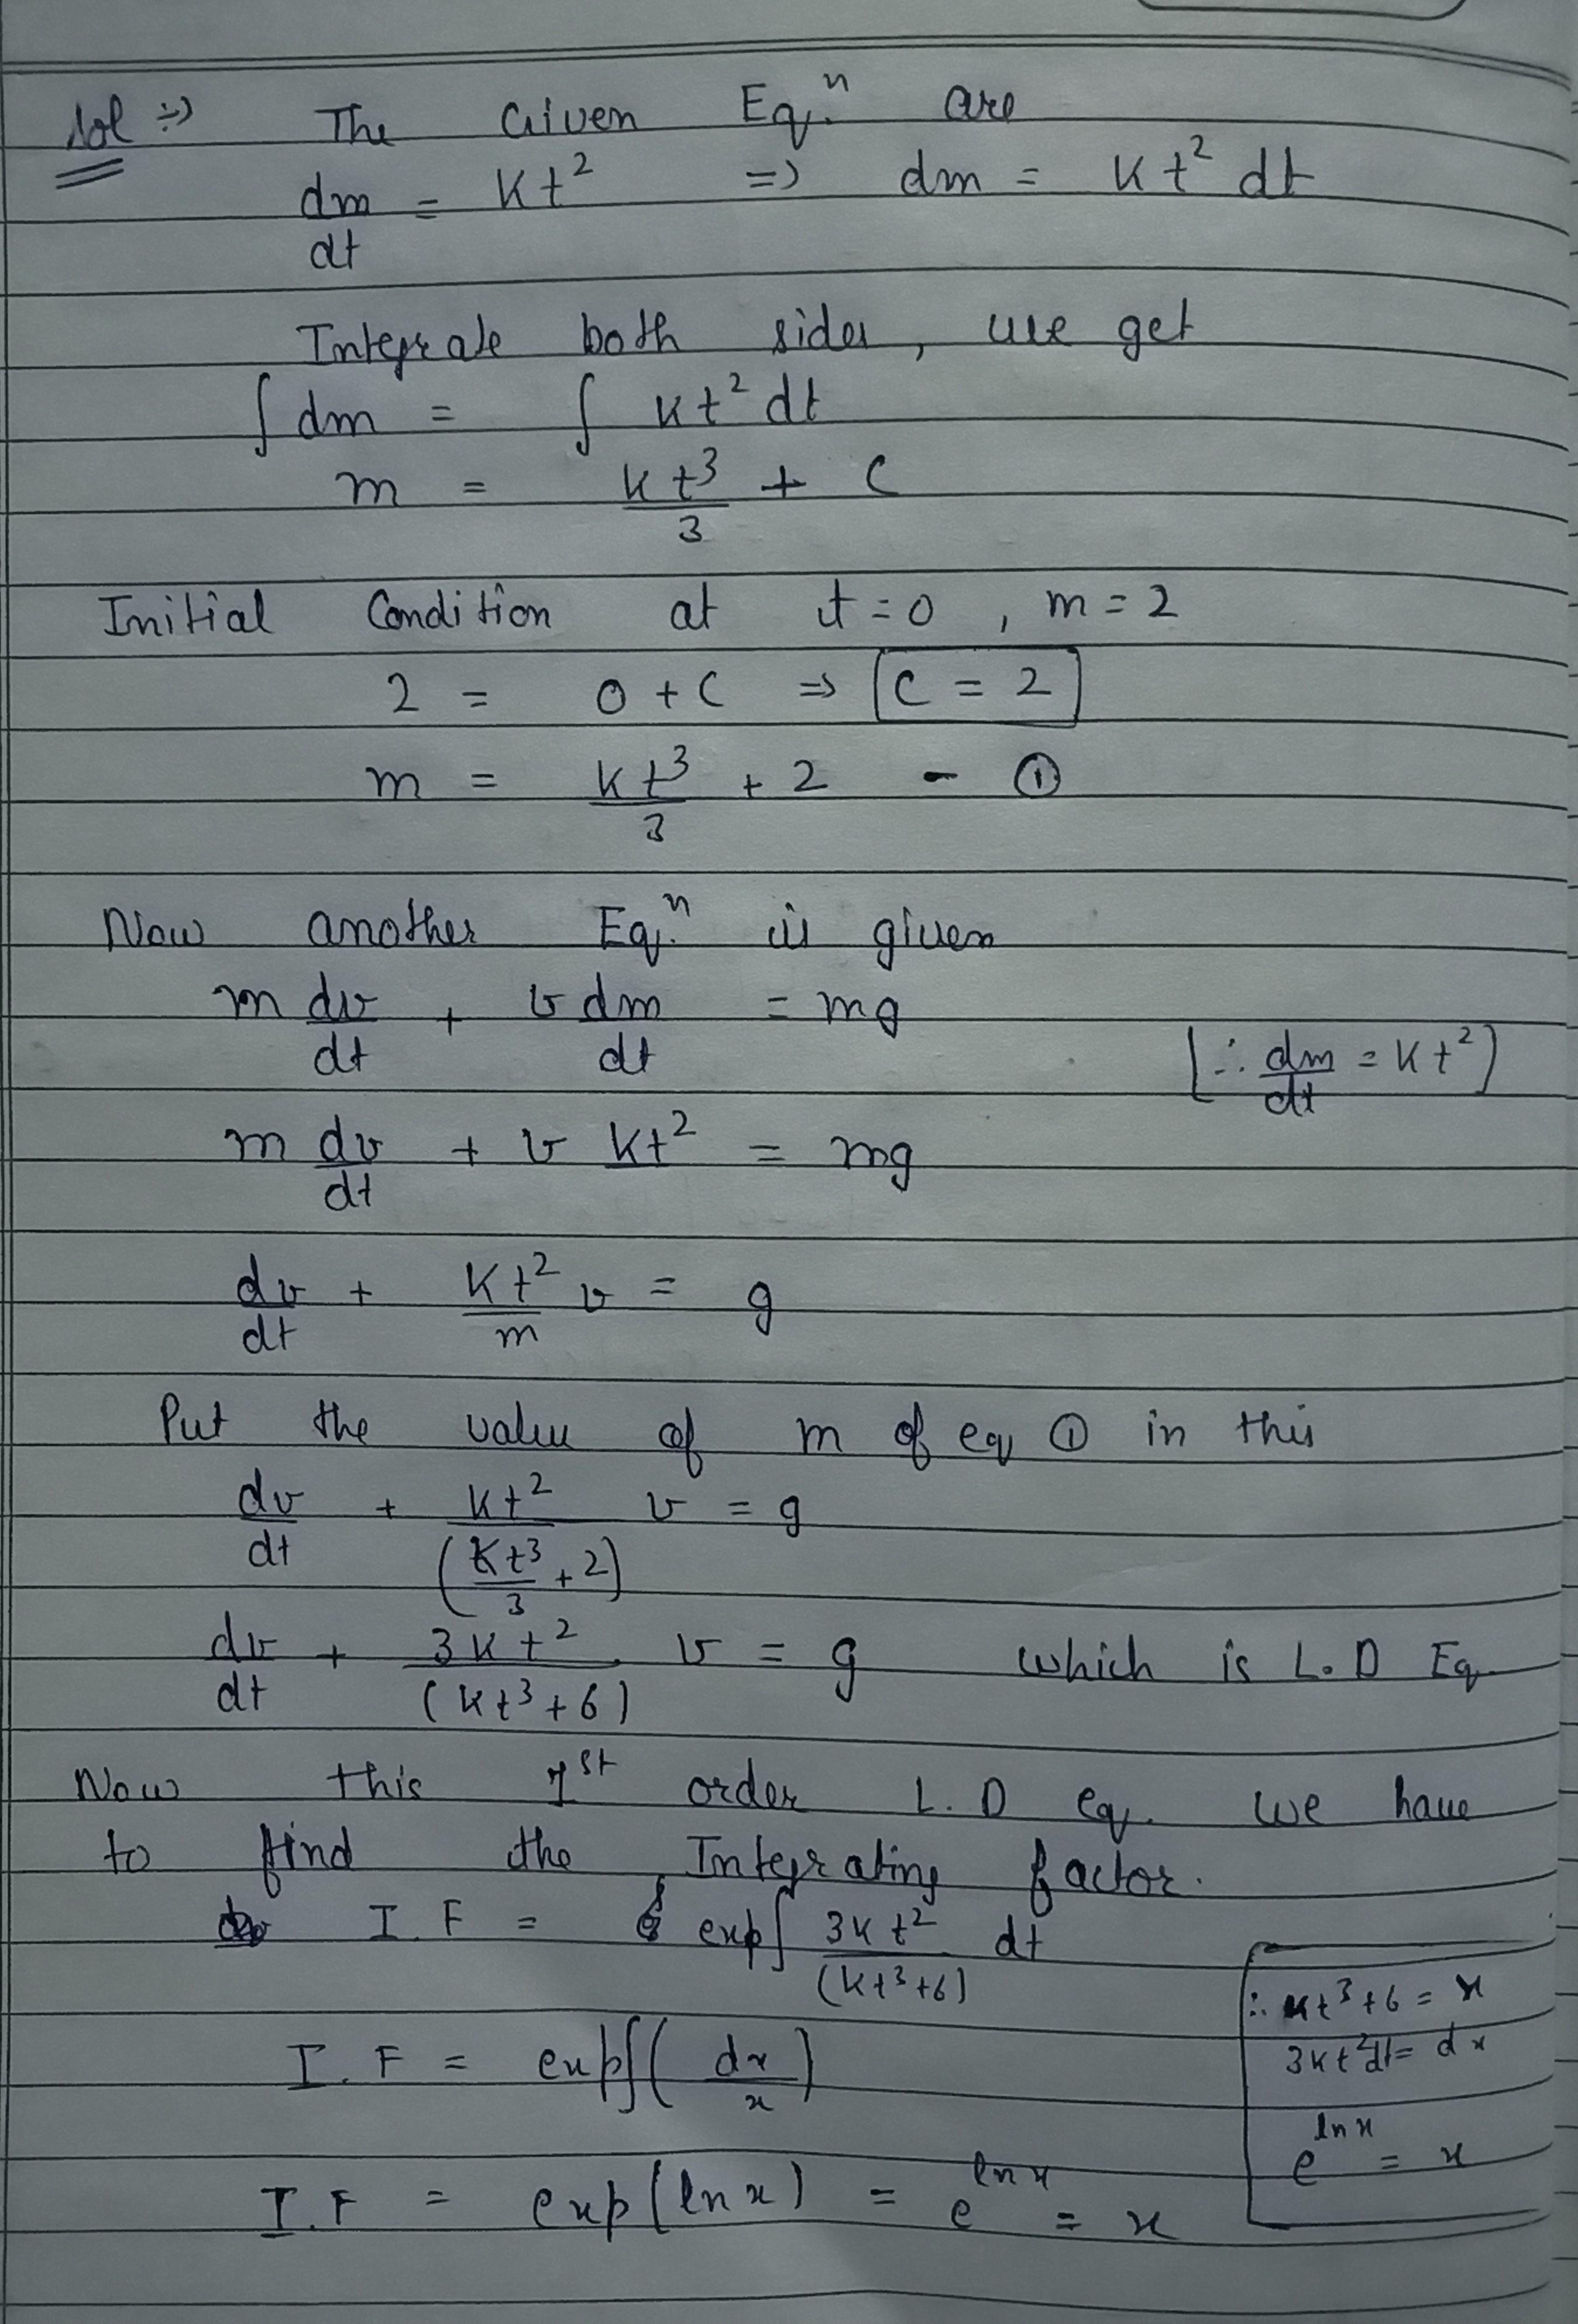 Sol ⇒ The Given Eqⁿ are
dm/dt = Kt² ⇒ dm = Kt² dt
Integrate both sides, we get
∫ dm = ∫ Kt² dt
m = Kt³/3 + C
Initial Condition at t = 0 , m = 2
2 = 0 + C ⇒ C = 2
m = Kt³/3 + 2 - ①
Now another Eqⁿ is given
m dv/dt + v dm/dt = mg [∴ dm/dt = Kt²]
m dv/dt + v Kt² = mg
dv/dt + Kt²/m v = g
Put the value of m of eq ① in this
dv/dt + Kt²/(Kt³/3 + 2) v = g
dv/dt + 3Kt²/(Kt³+6) v = g which is L.D Eq.
Now this 1st order L.D eq. we have
to find the Integrating factor.
I.F = exp∫ 3Kt²/(Kt³+6) dt
∴ Kt³+6 = x
3Kt²dt = dx
I.F = exp∫(dx/x)
e^ln x = x
I.F = exp(ln x) = e^ln x = x